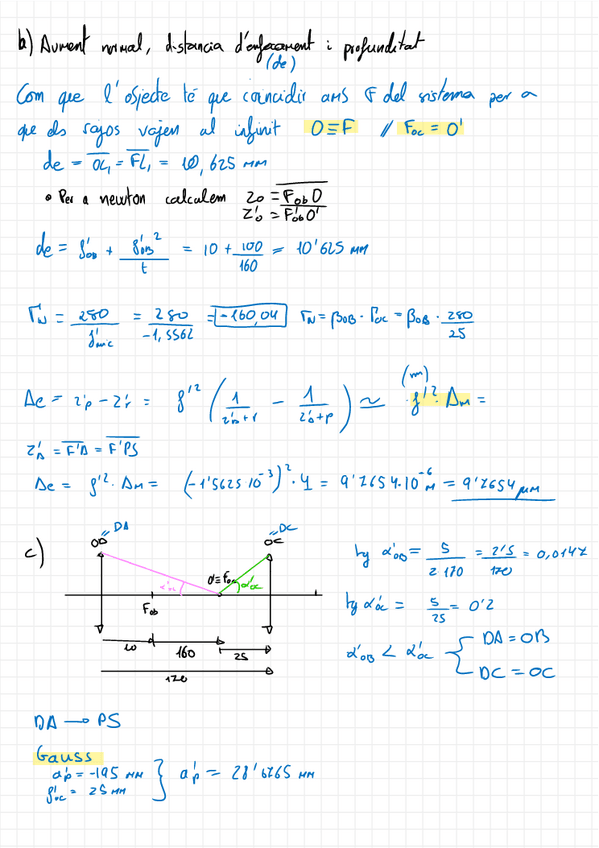 b) Aument normal, distancia d'enfocament i profunditat
(de)
Com que l'objecte té que coincidir amb F del sistema per a
que els rayos vajen al infinit O≡F // Foc = O'
de = OL₁ = FL₁ = 10,625 mm
• Per a newton calculem zo = FobO
z'o = F'obO'
de = f'ob + f'ob² / t = 10 + 100/160 = 10'625 mm
ΓN = 250/f'mic = 250/-1,5562 = -160,04 ΓN = βOB · ΓOC = βOB · 250/25
(m)
Δe = z'p - z'r = f'² (1/z'D+r - 1/z'D+p) ≃ f'² · ΔM =
z'D = F'D = F'PS
Δe = f'² · ΔM = (-1'5625 10⁻³)² · 4 = 9'7654·10⁻⁶ m = 9'7654 μm
c)
OB = DA
OC = DC
O'≡Foc
α'oc
Fob
10
160
25
170
tg α'OB = 5/170 = 2'5/170 = 0,0147
tg α'oc = 5/25 = 0'2
α'OB < α'oc { DA = OB
DC = OC
DA → PS
Gauss
ap = -195 mm
f'oc = 25 mm } a'p = 28'6765 mm